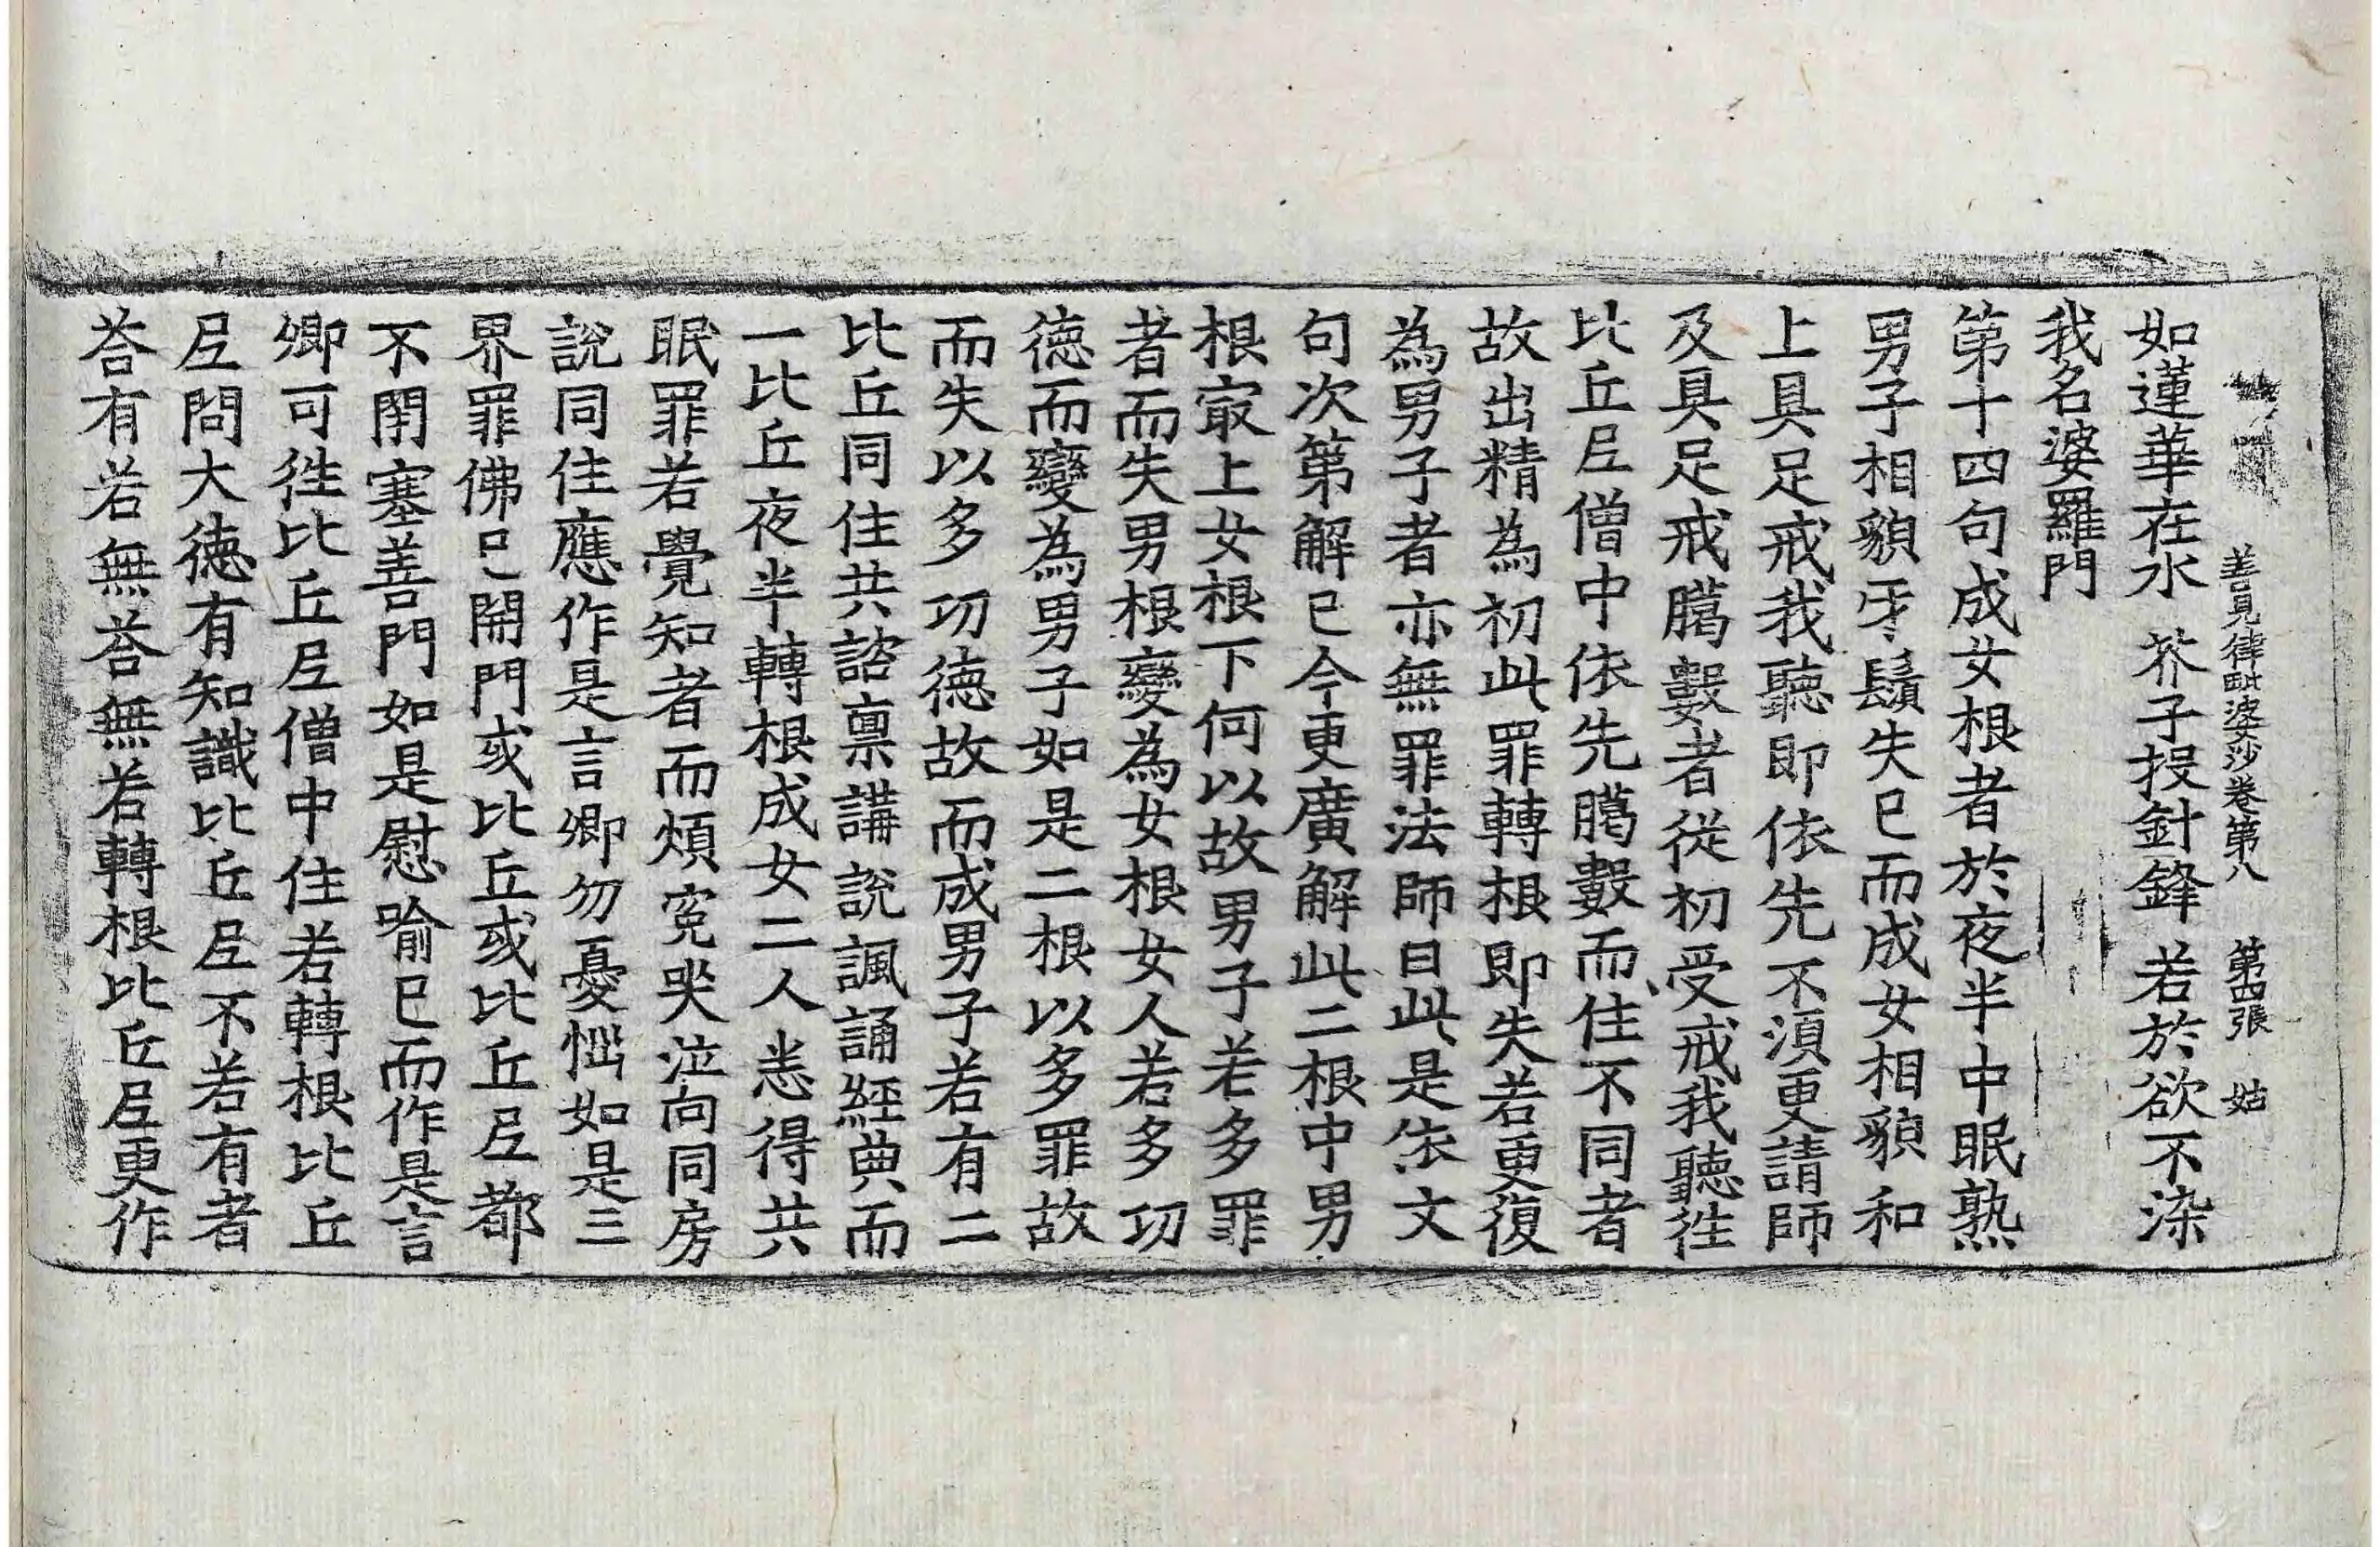 善見律毗婆沙卷第八　第四張　姑
如蓮華在水　芥子投針鋒　若於欲不染
我名婆羅門
第十四句成女根者於夜半中眠熟
男子相貌牙鬚失已而成女相貌和
上具足戒我聽即依先不湏更請師
及具足戒臈數者從初受戒我聽徃
比丘尼僧中依先臈數而住不同者
故出精為初此罪轉根即失若更復
為男子者亦無罪法師曰此是依文
句次第解已今更廣解此二根中男
根㝡上女根下何以故男子若多罪
者而失男根變為女根女人若多功
德而變為男子如是二根以多罪故
而失以多功德故而成男子若有二
比丘同住共諮稟講說諷誦經典而
一比丘夜半轉根成女二人恙得共
眠罪若覺知者而煩寃哭泣向同房
說同住應作是言卿勿憂惱如是三
界罪佛已開門或比丘或比丘尼都
不閇塞善門如是慰喻已而作是言
卿可徃比丘尼僧中住若轉根比丘
尼問大德有知識比丘尼不若有者
荅有若無荅無若轉根比丘尼更作